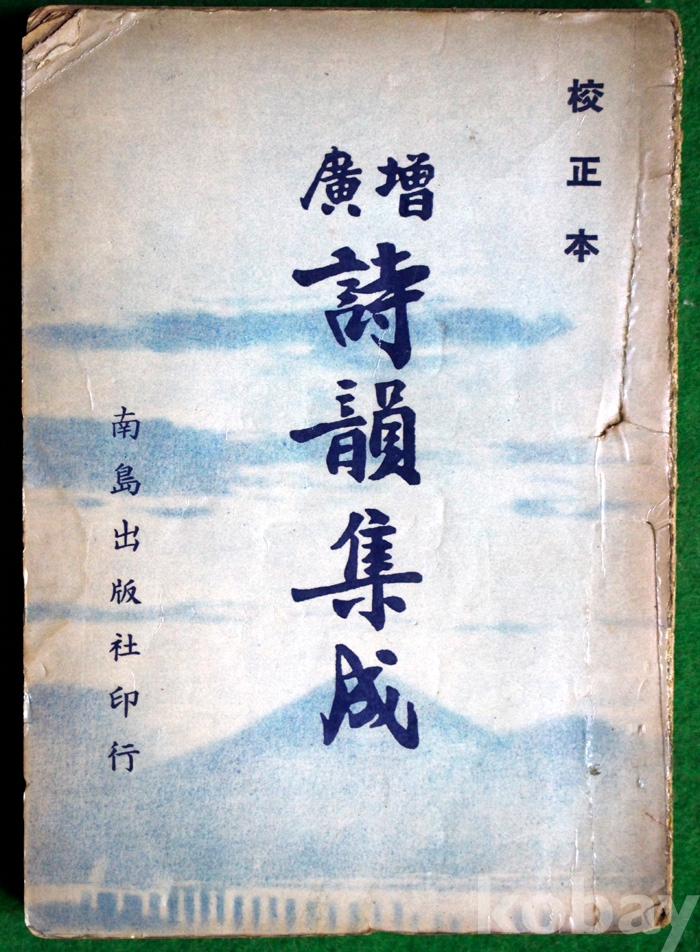 校正本
增廣
詩韻集成
南島出版社印行
kobay